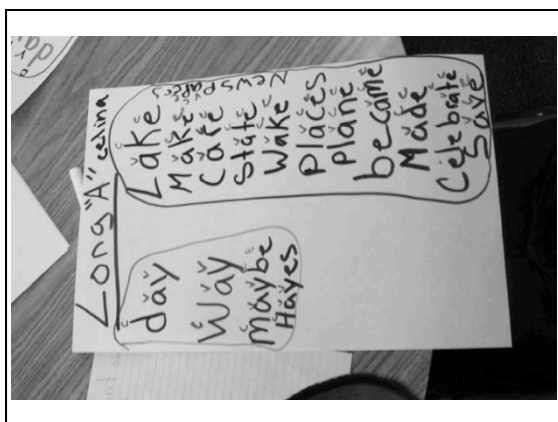 Long "A" celina
day
Way
maybe
Hayes
Lake
Make
State
Wake
Places
plane
became
Made
Celebrate
save
Newspapers
day